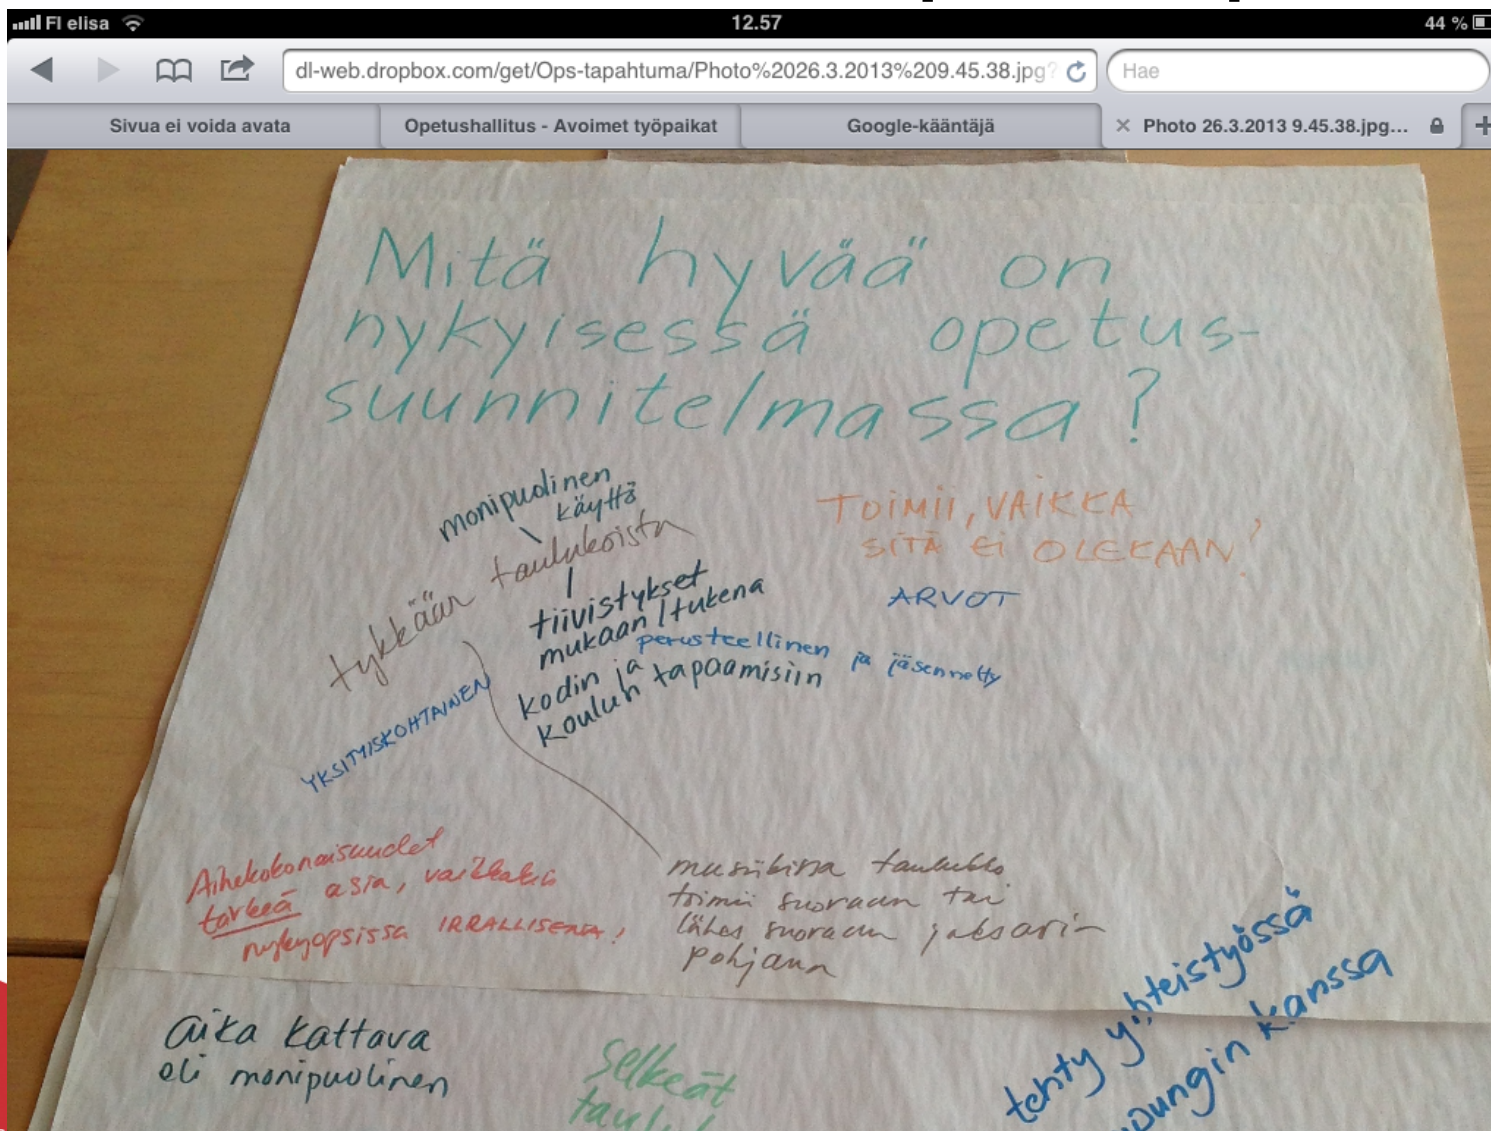 FI elisa
12.57
44 %
dl-web.dropbox.com/get/Ops-tapahtuma/Photo%2026.3.2013%209.45.38.jpg?
Hae
Sivua ei voida avata
Opetushallitus - Avoimet työpaikat
Google-kääntäjä
Photo 26.3.2013 9.45.38.jpg...
Mitä hyvää on
nykyisessä opetus-
suunnitelmassa?
monipuolinen
käyttö
tykkään taulukoista
tiivistykset
mukaan / tukena
kodin ja
koulun tapaamisiin
TOIMII, VAIKKA
SITÄ EI OLEKAAN!
ARVOT
perusteellinen ja jäsennelty
YKSITYISKOHTAINEN
Aihekokonaisuudet
tärkeä asia, vaikkakin
nykyopsissa IRRALLISENA!
musiikissa taulukko
toimii suoraan tai
lähes suoraan jaksarin
pohjana
aika kattava
eli monipuolinen
selkeät
tehty yhteistyössä
kanssa